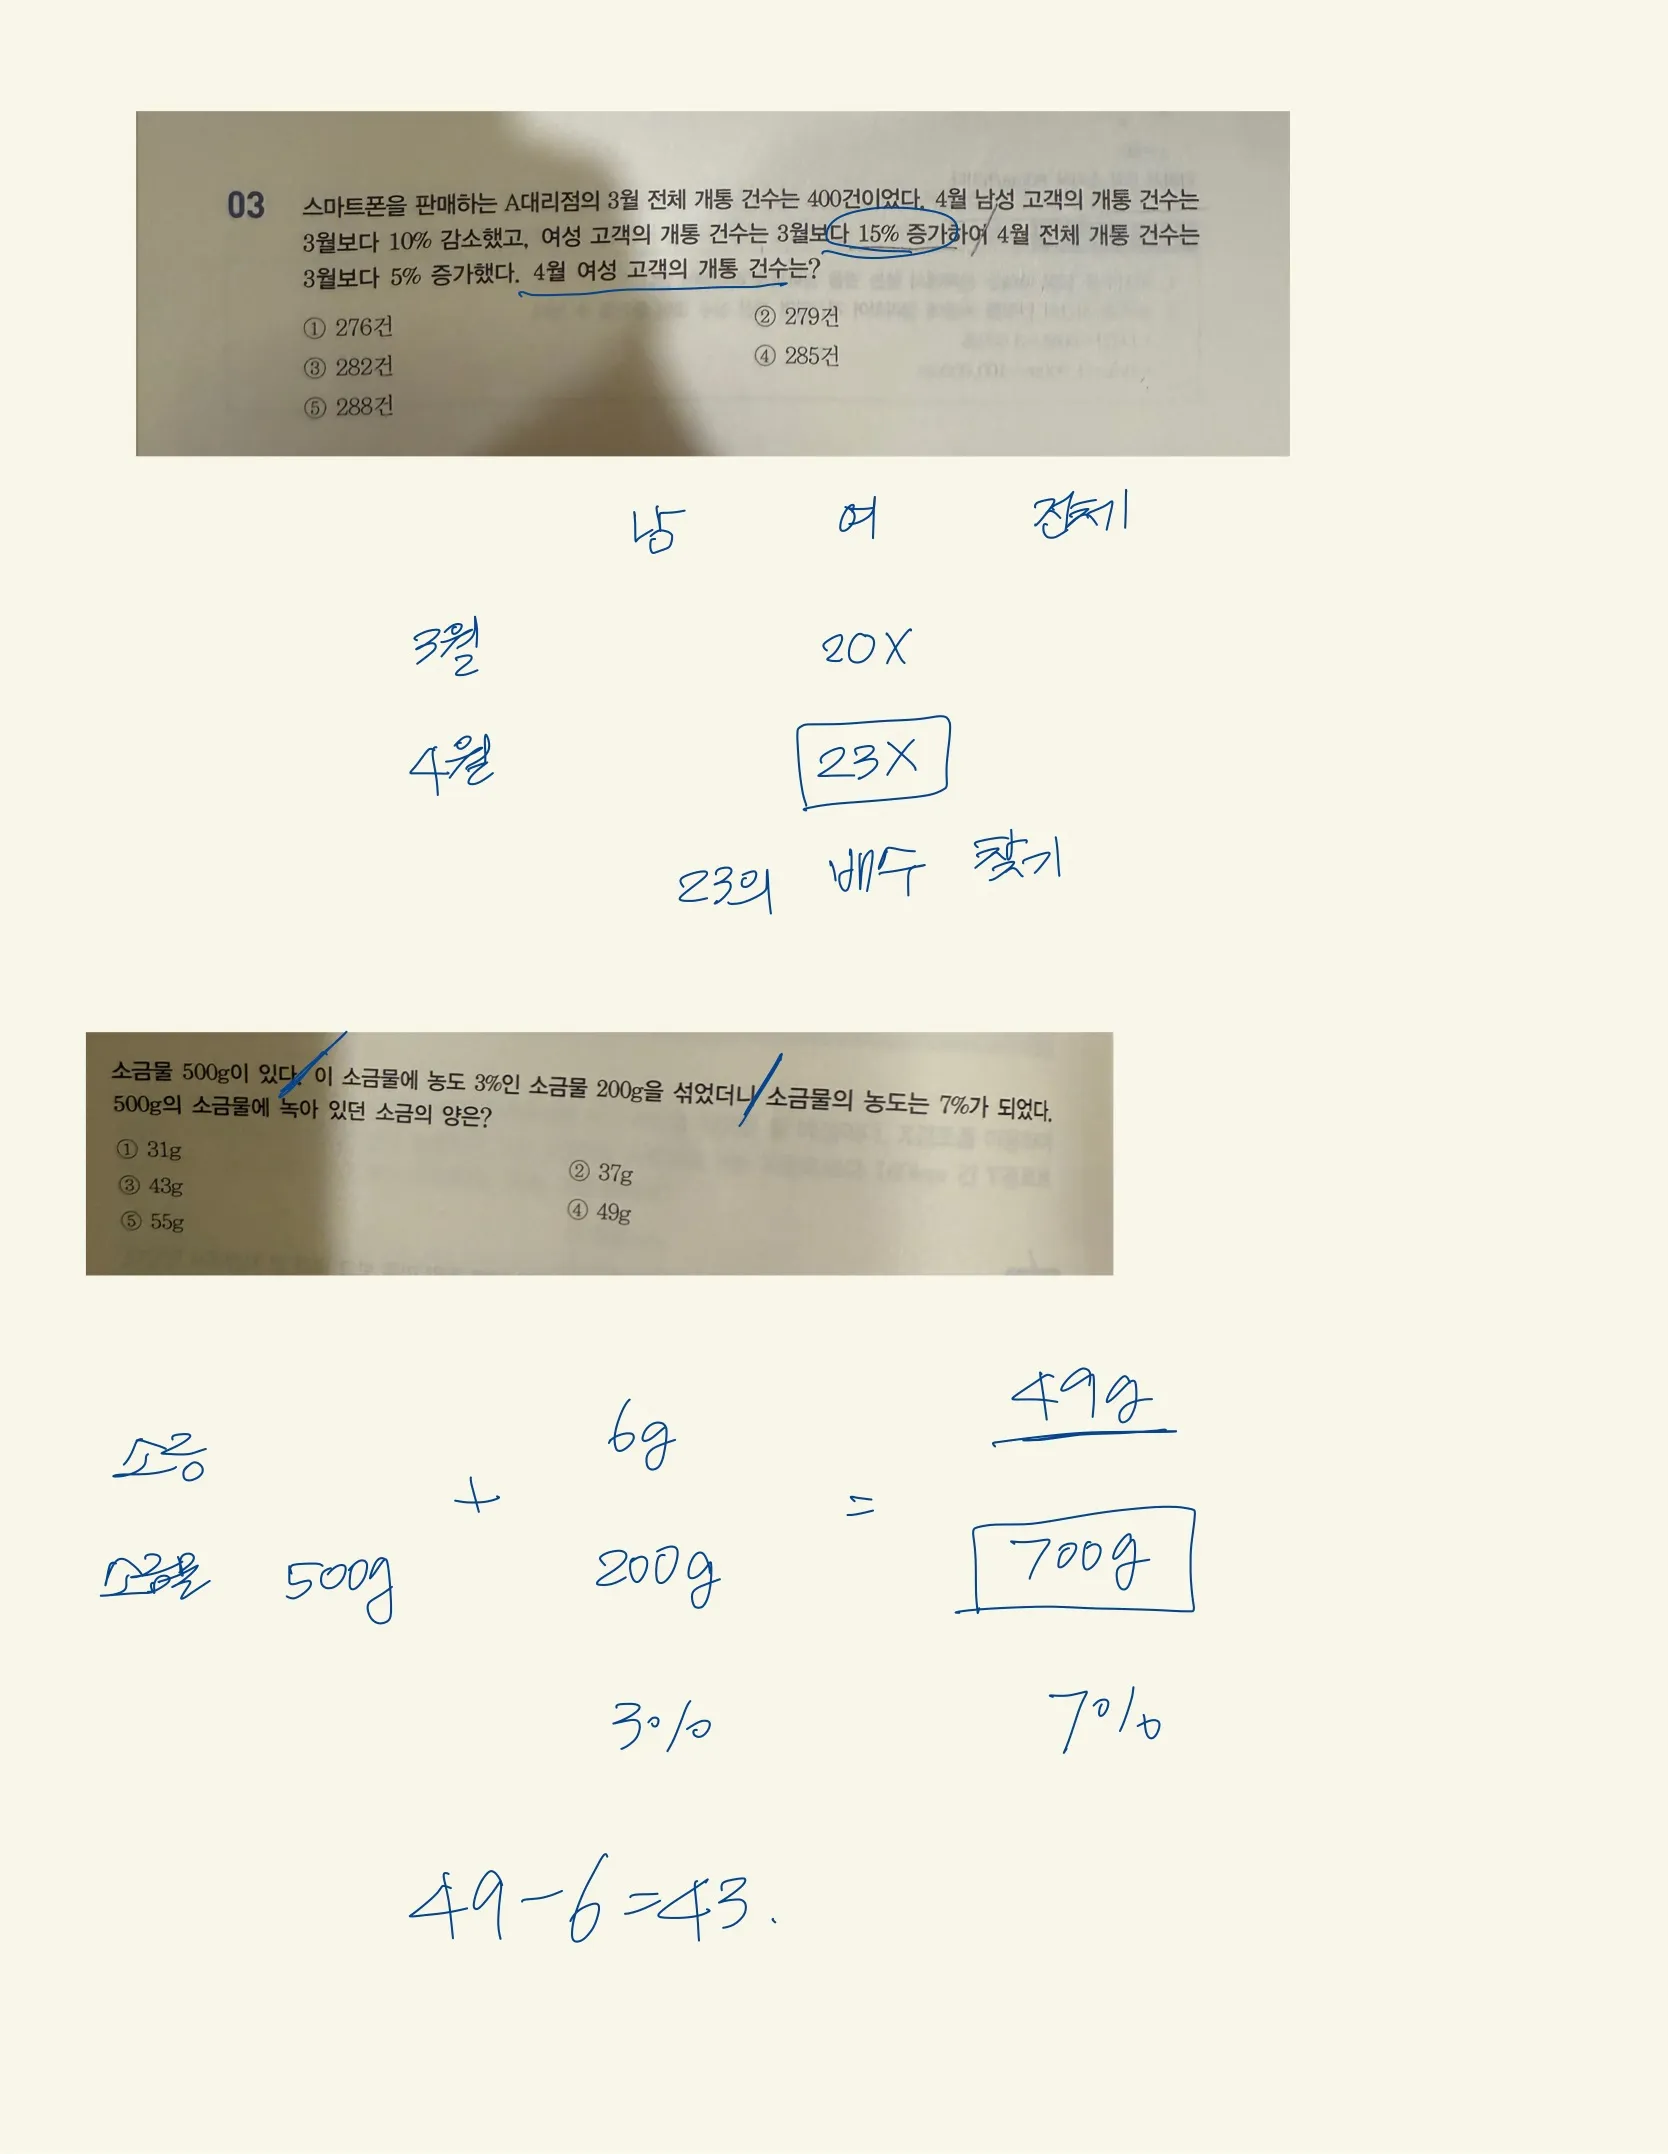 03 스마트폰을 판매하는 A대리점의 3월 전체 개통 건수는 400건이었다. 4월 남성 고객의 개통 건수는
3월보다 10% 감소했고, 여성 고객의 개통 건수는 3월보다 15% 증가하여 4월 전체 개통 건수는
3월보다 5% 증가했다. 4월 여성 고객의 개통 건수는?
① 276건 ② 279건
③ 282건 ④ 285건
⑤ 288건
남 여 전체
3월 20X
4월 23X
23의 배수 찾기
소금물 500g이 있다. 이 소금물에 농도 3%인 소금물 200g을 섞었더니 소금물의 농도는 7%가 되었다.
500g의 소금물에 녹아 있던 소금의 양은?
① 31g ② 37g
③ 43g ④ 49g
⑤ 55g
소금 6g 49g
+ =
소금물 500g 200g 700g
3% 7%
49-6=43.